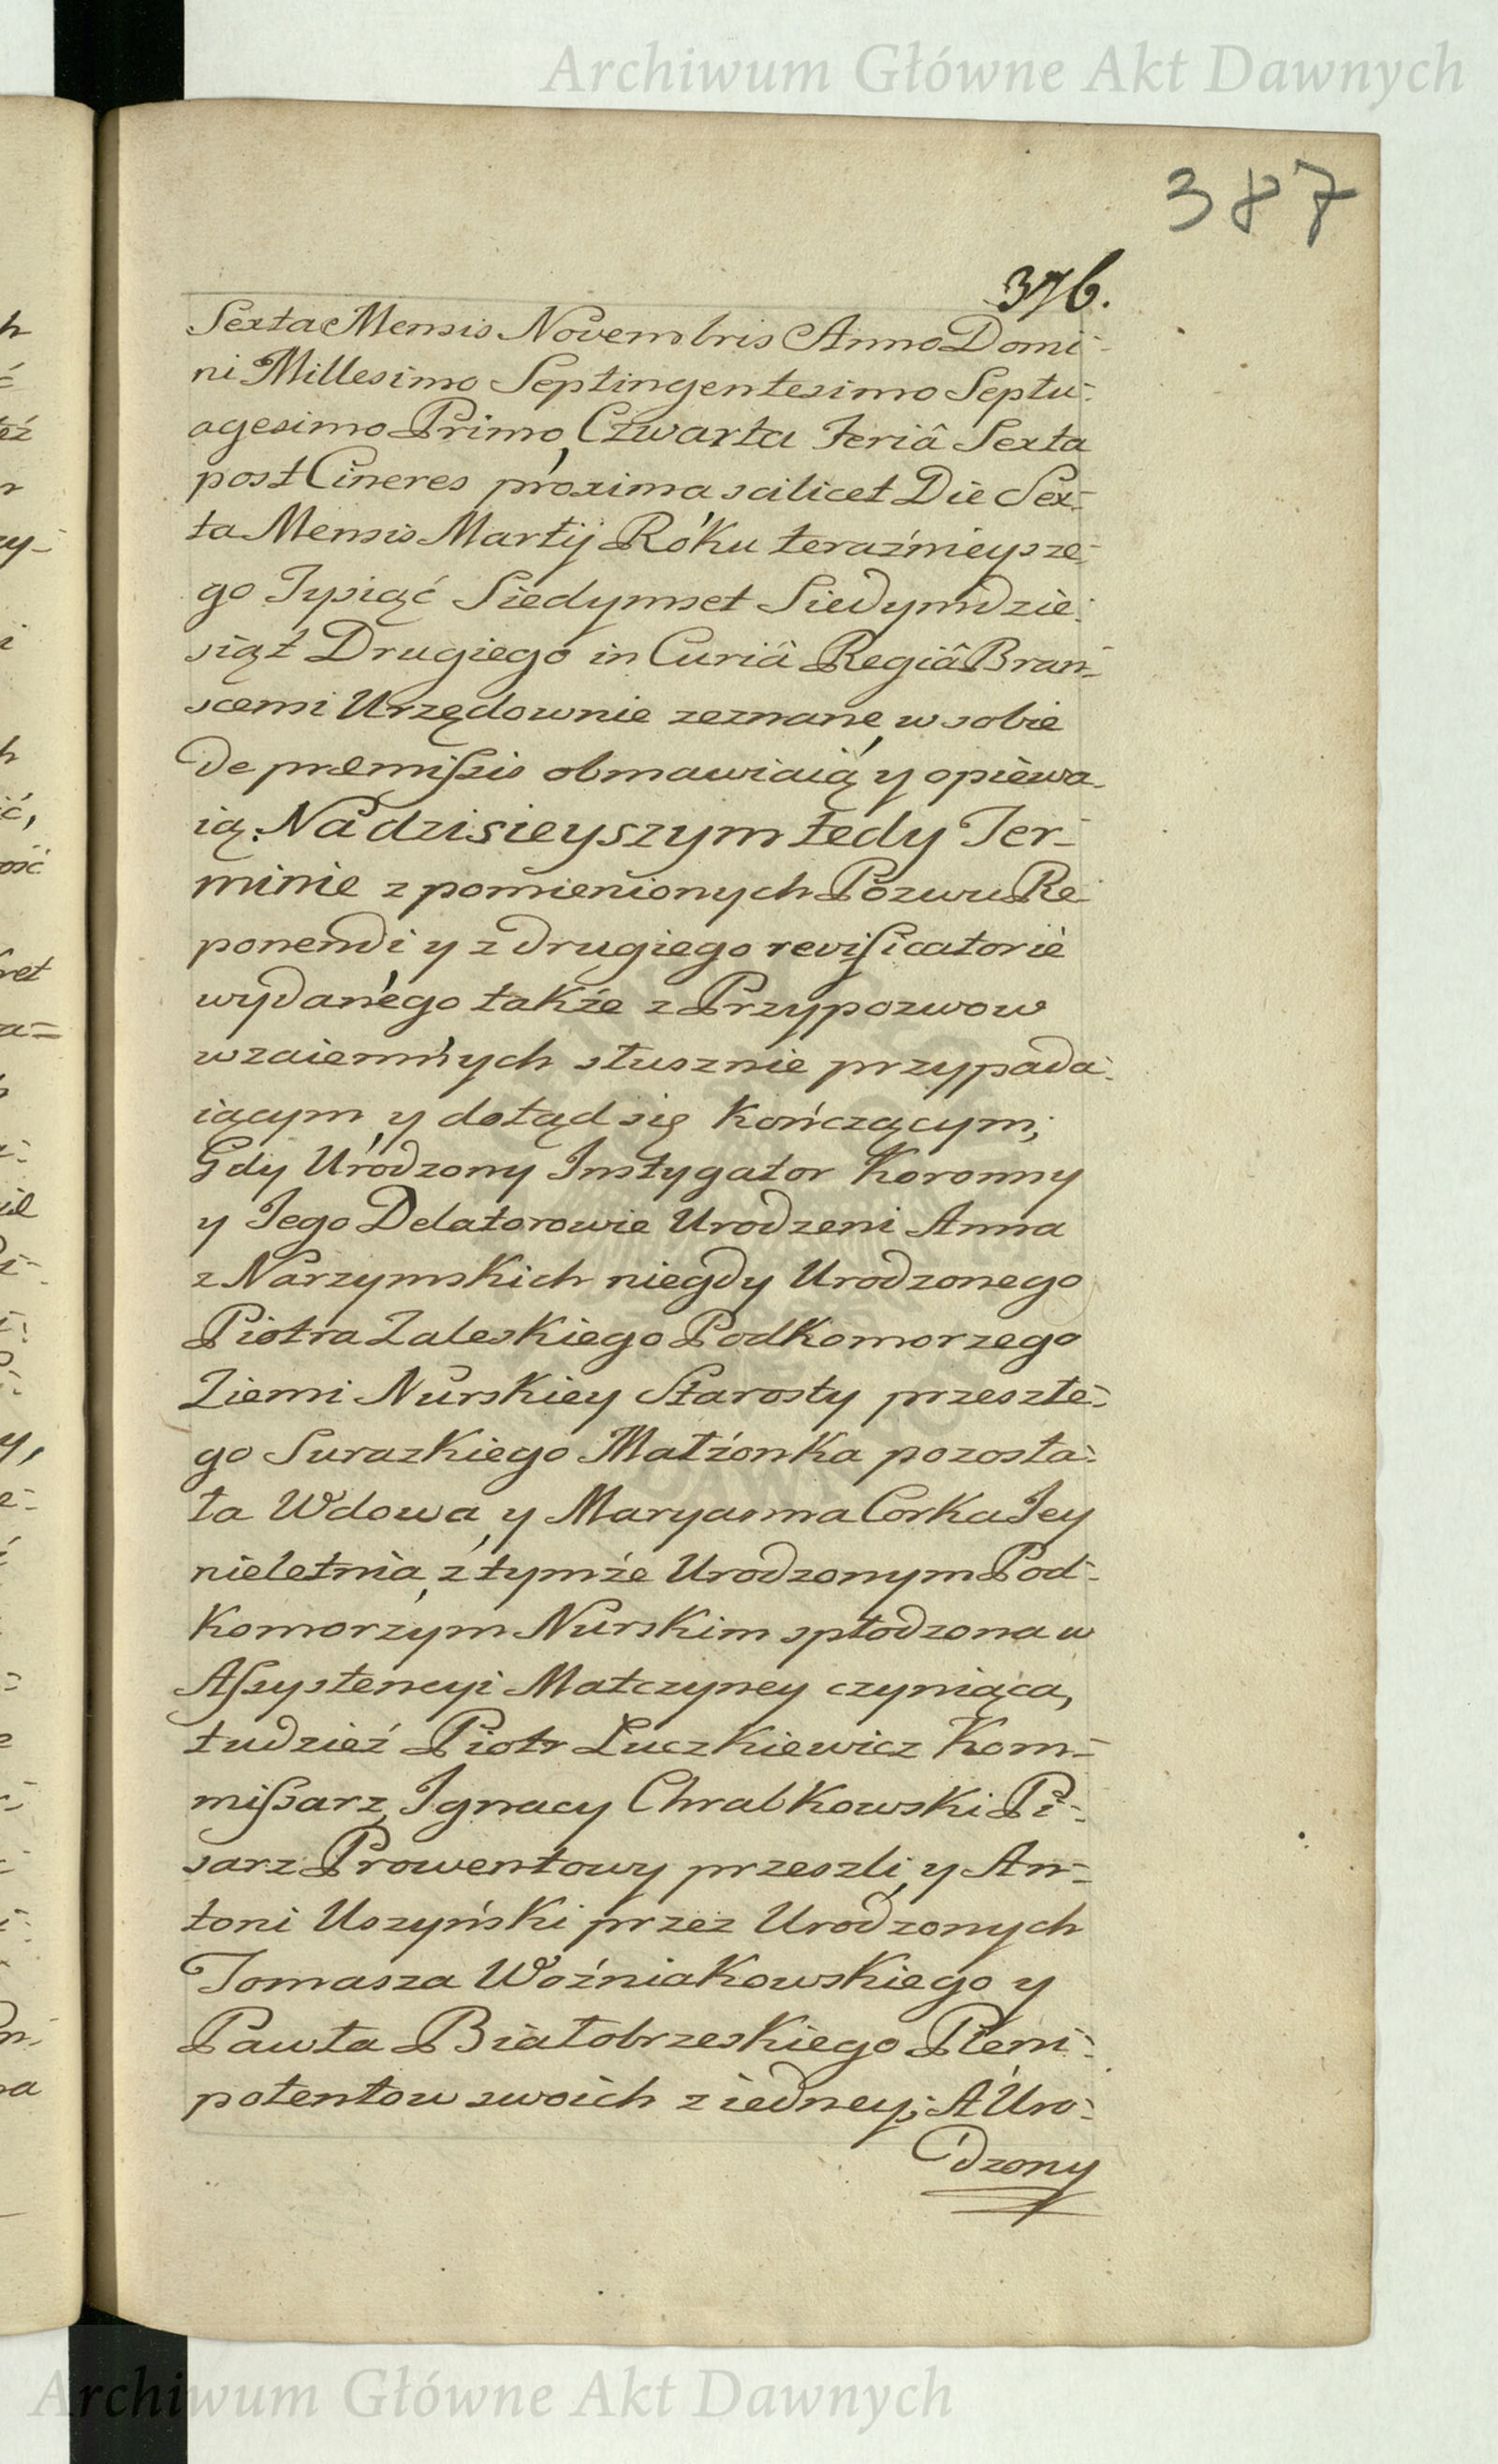 Archiwum Główne Akt Dawnych
387
376.
Sexta Mensis Novembris Anno Domi-
ni Millesimo Septingentesimo Septu-
agesimo Primo, Czwarta Feriâ Sexta
post Cineres proxima scilicet Die Sex-
ta Mensis Martij Roku teraźnieysze-
go Tysiąć Siedymset Siedymdzie-
siąt Drugiego in Curiâ Regiâ Bran-
scensi Urzędownie zeznane, w sobie
de præmissis obmawiaią, y opiewa-
ią. Na dzisieyszym tedy Ter-
minie z pomienionych Pozwu Re-
ponendi y z drugiego revisicatorie
wydanego także z Przypozwow
wzaiemnych słusznie przypada-
iącym, y dotąd się kończącym;
Gdy Urodzony Instygator Koronny
y Iego Delatorowie Urodzeni Anna
z Narzymskich niegdy Urodzonego
Piotra Zaleskiego Podkomorzego
Ziemi Nurskiey Starosty przeszłe-
go Surazkiego Małżonka pozosta-
ła Wdowa, y Maryanna Corka Iey
nieletnia, z tymże Urodzonym Pod-
komorzym Nurskim spłodzona w
Assystencyi Matczyney czyniąca,
tudzież Piotr Łuczkiewicz Kom-
missarz, Ignacy Chrabkowski Pi-
sarz Prowentowy przeszli, y An-
toni Uszyński przez Urodzonych
Tomasza Woźniakowskiego y
Pawła Białobrzeskiego Pleni-
potentow swoich z iedney; A Uro-
dzony
Archiwum Główne Akt Dawnych